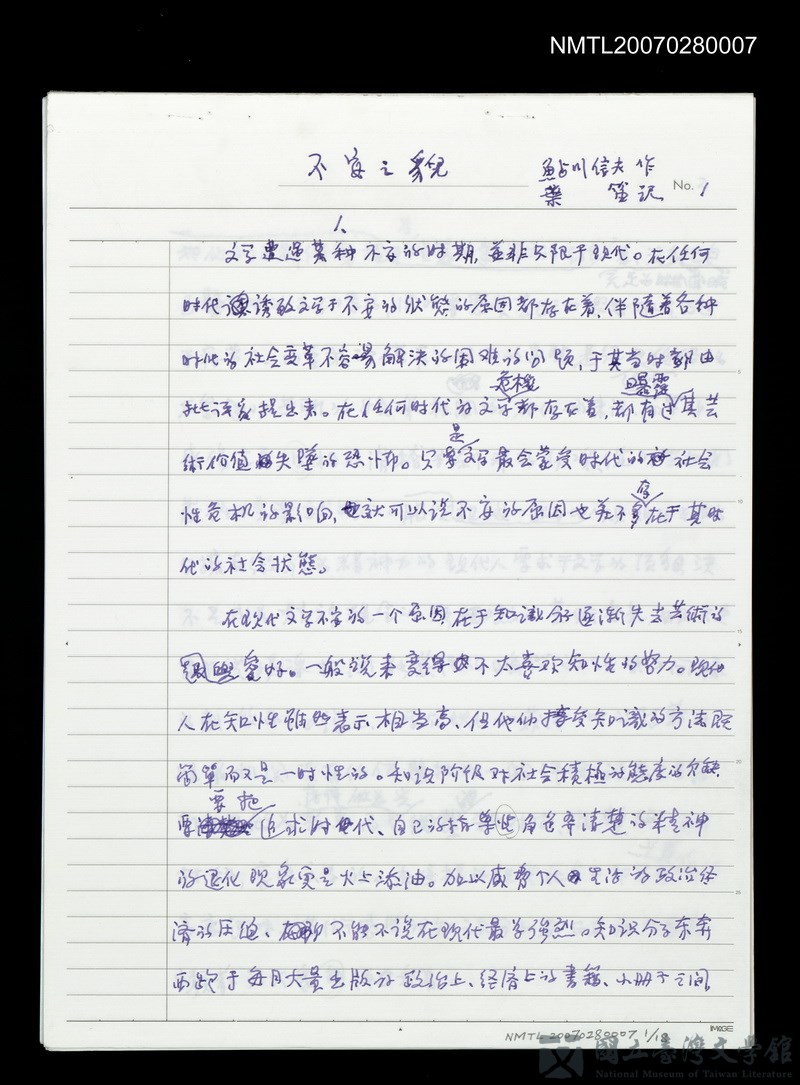 NMTL20070280007
不安之貌
鮎川信夫 作
葉 笛記
No. 1
1.
文学遭遇某种不安的时期，並非只限于现代。在任何
时代，誘致文学于不安的状態的原因都存在着，伴隨着各种
时代的社会变革不容易解決的困难的问题，于其当时都由
此被提出来。在任何时代的文学都存在着危機，都有过曝露其芸
術价值失墮的恐怖。只要是文学最会蒙受时代的社会
性危机的影响，就可以说不安的原因也並不存在于其时
代的社会状態。
在现代文学不安的一个原因在于知識分子逐漸失去芸術的
興趣愛好。一般说来变得不太喜欢知性的努力。现代
人在知性雖然表示相当高，但他们接受知識的方法既
简單而又是一时性的。知识阶级对社会積極的態度的欠缺，
要把追求时代、自己的指導角色率清楚的精神
的退化现象实是火上添油。加以威脅个人生活的政治经
濟的压迫，不能不说在现代最为強烈。知识分子东奔
西跑于每月大量出版的政治上、经濟上的書籍、小册子之间，
IMAGE
NMTL 20070280007 1/18
國立臺灣文學館
National Museum of Taiwan Literature